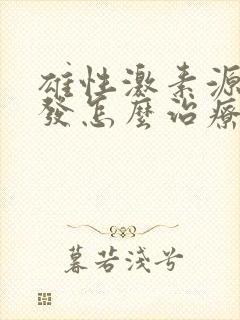 雄性激素源
發怎麼治療
暮若淺兮